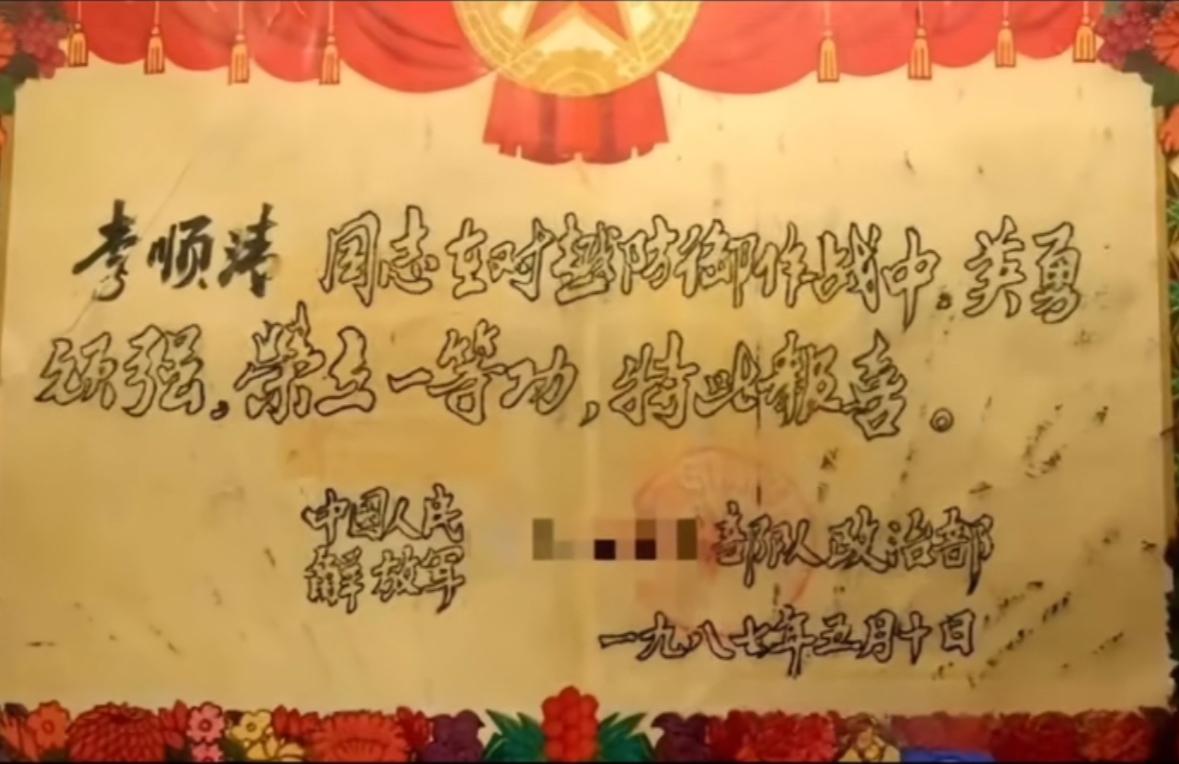 李顺清 同志在对越防御作战中,英勇
顽强,荣立一等功,特此报喜。
中國人民
解放军
部队政治部
一九八七年五月十日